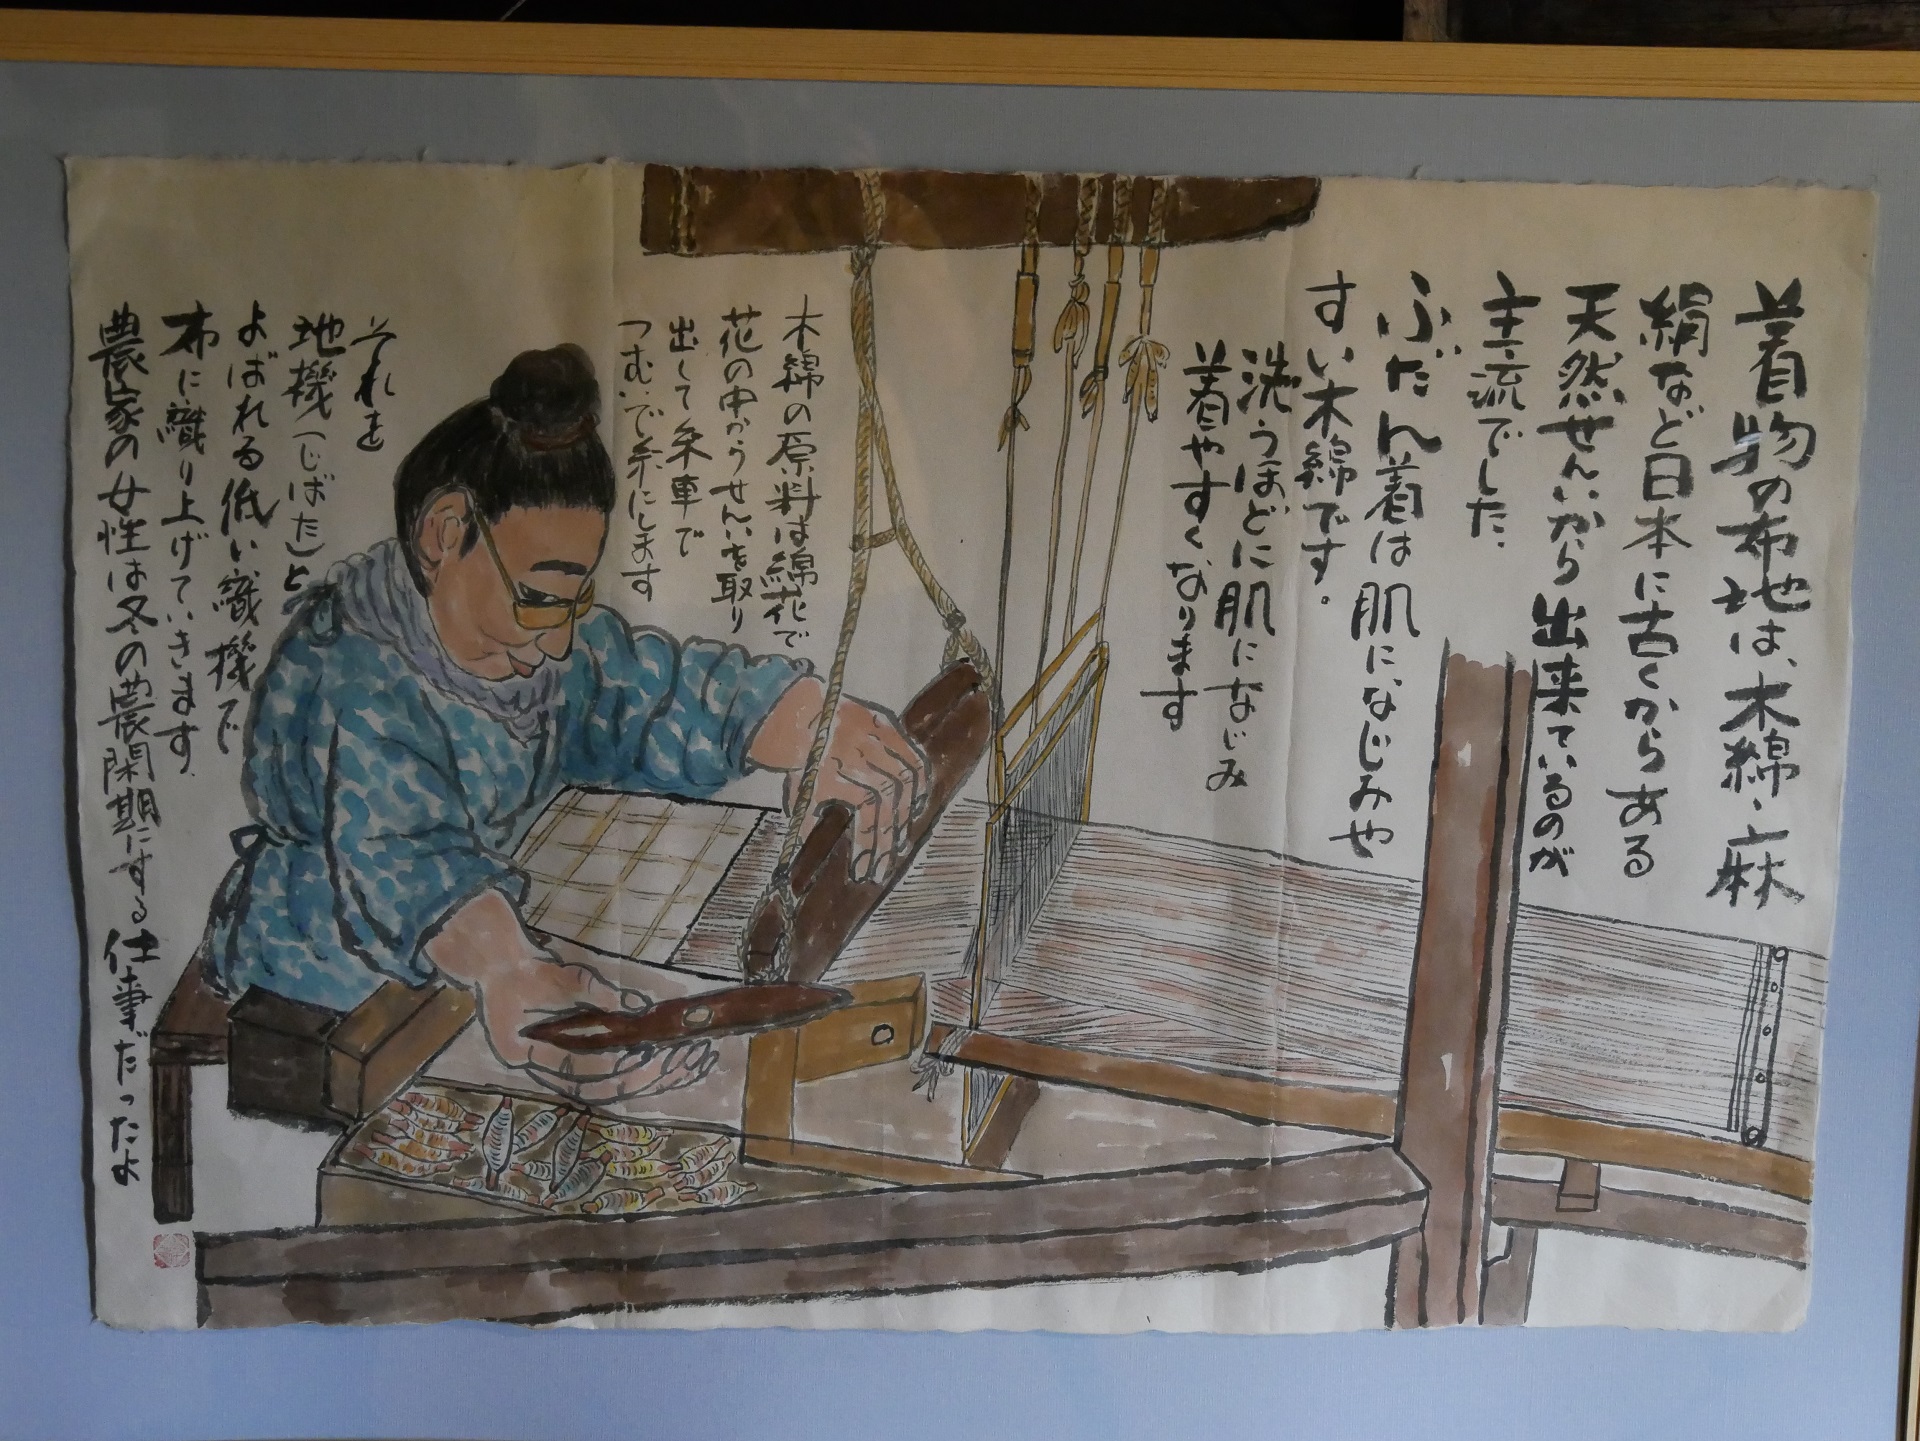 着物の布地は、木綿・麻
絹など日本に古くからある
天然せんいから出来ているのが
主流でした.
ふだん着は肌になじみや
すい木綿です。
洗うほどに肌になじみ
着やすくなります
木綿の原料は綿花で
花の中からせんいを取り
出して糸車で
つむいで糸にします
それを
地機(じばた)と
よばれる低い織機で
布に織り上げていきます.
農家の女性は冬の農閑期にする仕事だったよ